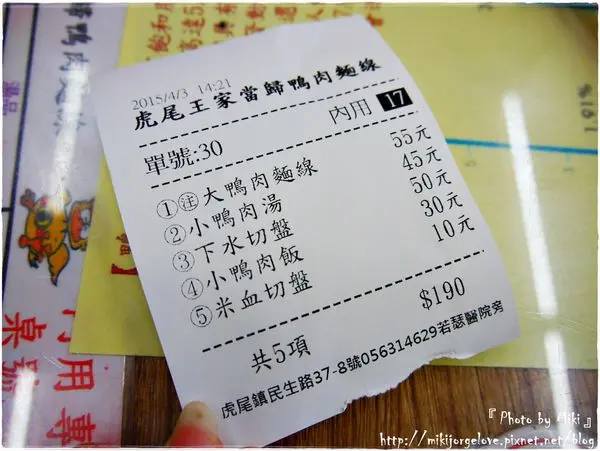 2015/4/3 14:21
虎尾王家當歸鴨肉麵線
內用 17
單號:30
①註大鴨肉麵線 55元
②小鴨肉湯 45元
③下水切盤 50元
④小鴨肉飯 30元
⑤米血切盤 10元
共5項 $190
虎尾鎮民生路37-8號056314629若瑟醫院旁
鴨肉麵線
湯品
內用專
桌號
『 Photo by Miki 』
http://mikijorgelove.pixnet.net/blog